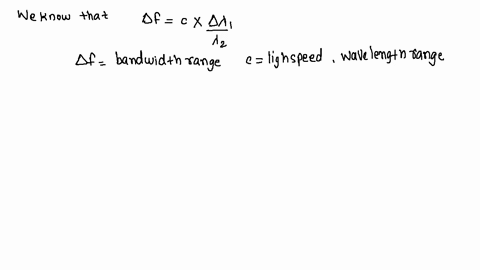 We know that Δf = c × Δλ₁ / λ₂
Δf = bandwidth range c = lighspeed , wavelength range